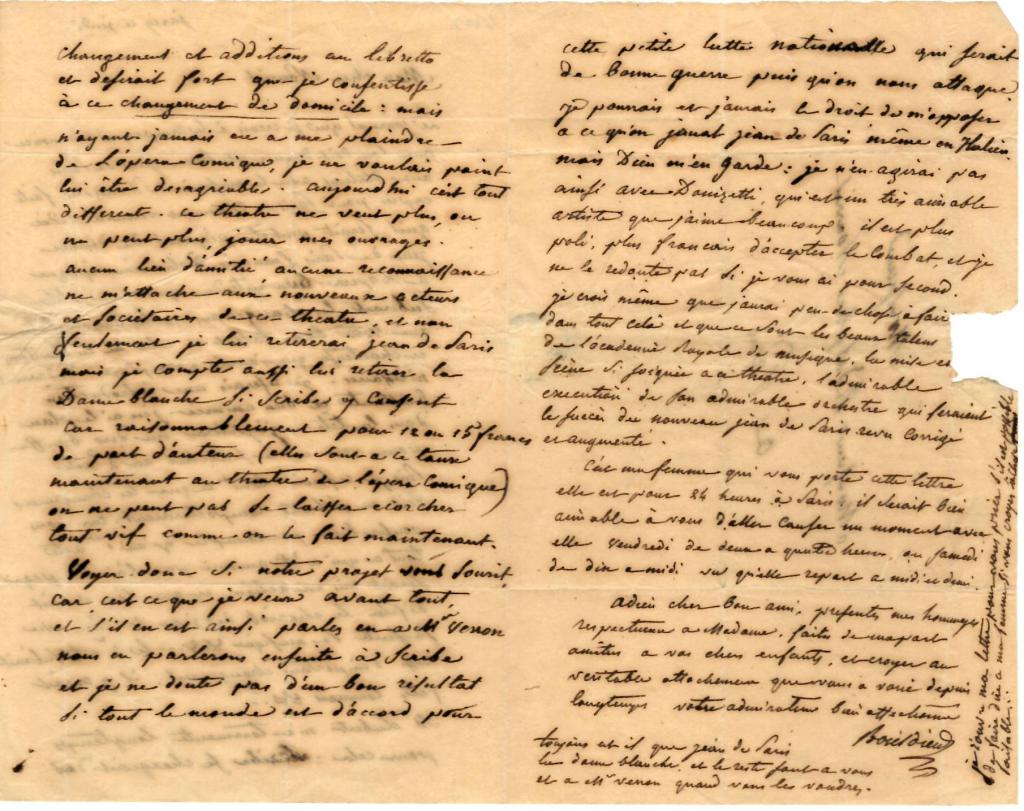 changement et additions au libretto
et desirait fort que je consentisse
à ce changement de domicile : mais
n'ayant jamais eu a me plaindre
de L'opera Comique, je ne voulais point
lui être desagréable. aujourd'hui c'est tout
different. ce theatre ne veut plus, ou
ne peut plus, jouer mes ouvrages.
aucun lien d'amitié aucune reconnaissance
ne m'attache aux nouveaux acteurs
et Sociétaires de ce theatre, et non
Seulement je lui retirerai jean de Paris
mais je compte aussi lui retirer la
Dame blanche Si Scribe y Consent
car raisonnablement pour 12 ou 15 francs
de part d'auteur (elles Sont a ce taux
maintenant au theatre de l'opera Comique)
on ne peut pas Se laisser ecorcher
tout vif comme on le fait maintenant.
Voyez donc Si notre projet vous Sourit
car c'est ce que je veux avant tout,
et S'il en est ainsi parlez en a Mr Veron
nous en parlerons ensuite à Scribe
et je ne doute pas d'un bon résultat
Si tout le monde est d'accord pour
cette petite lutte nationalle qui serait
de bonne guerre puisqu'on nous attaque.
je pourrais et j'aurais le droit de m'opposer
a ce qu'on jouat jean de Paris même en Italien
mais Dieu m'en garde : je n'en agirai pas
ainsi avec Donizetti, qui est un très aimable
artiste que j'aime beaucoup. il est plus
poli, plus francais d'accepter le Combat, et je
ne le redoute pas Si je vous ai pour Second.
je crois même que j'aurai peu de chose à fair
dans tout celà et que ce Sont les beaux talens
de l'académie Royale de musique, la mise en
Scène Si Soignée a ce theatre, l'admirable
execution de Son admirable orchestre qui feraient
le Succès du nouveau jean de Paris revu Corrigé
et augmenté.
C'est ma femme qui vous porte cette lettre
elle est pour 24 heures à Paris. il Serait bien
aimable à vous d'aller Causer un moment avec
elle Vendredi de deux a quatre heures, ou Samedi
de dix a midi vu qu'elle repart a midi et demi.
adieu cher bon ami, presentes mes hommages
respectueux a Madame, faites de ma part
amitiés a vos chers enfants, et croyez au
veritable attachement que vous a voué depuis
longtemps votre admirateur bien affectionné
Boieldieu
toujours est il que jean de Paris
la dame blanche, et le reste Sont a vous
et a Mr Veron quand vous les voudrez.
je rouvre ma lettre pour vous prier s'il est possible
de faire dire a ma femme si vous croyez